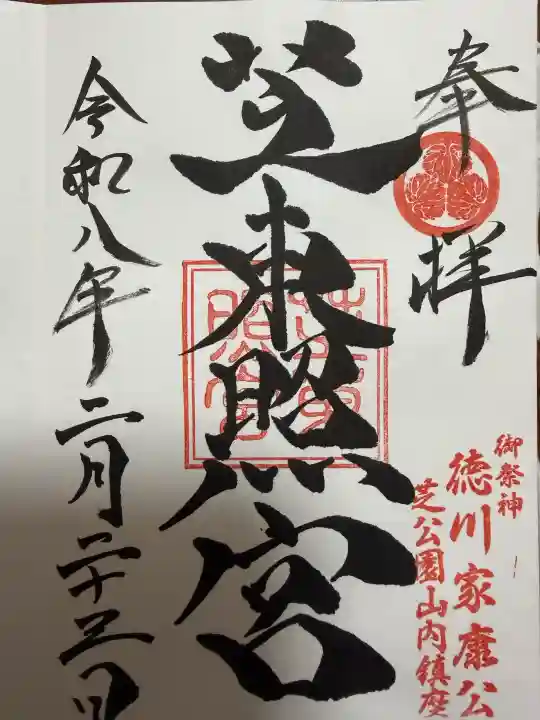 奉拝
御祭神
徳川家康公
芝公園山内鎮座
芝東照宮
令和八年二月二十三日